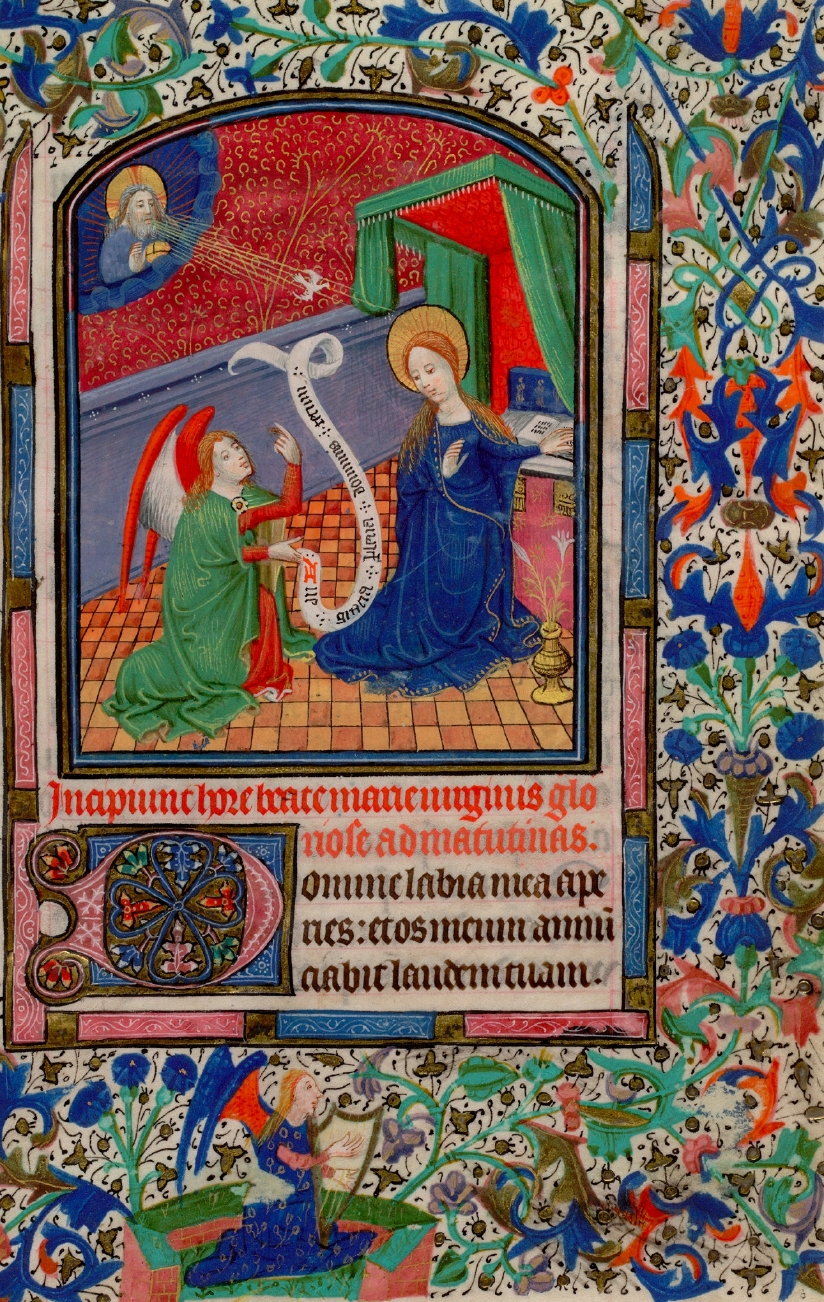 Aue gratia : plena : dominus : tecum
Incipiunt hore beate marie uirginis glo
riose ad matutinas.
Domine labia mea ape
ries: et os meum annū
ciabit laudem tuam.